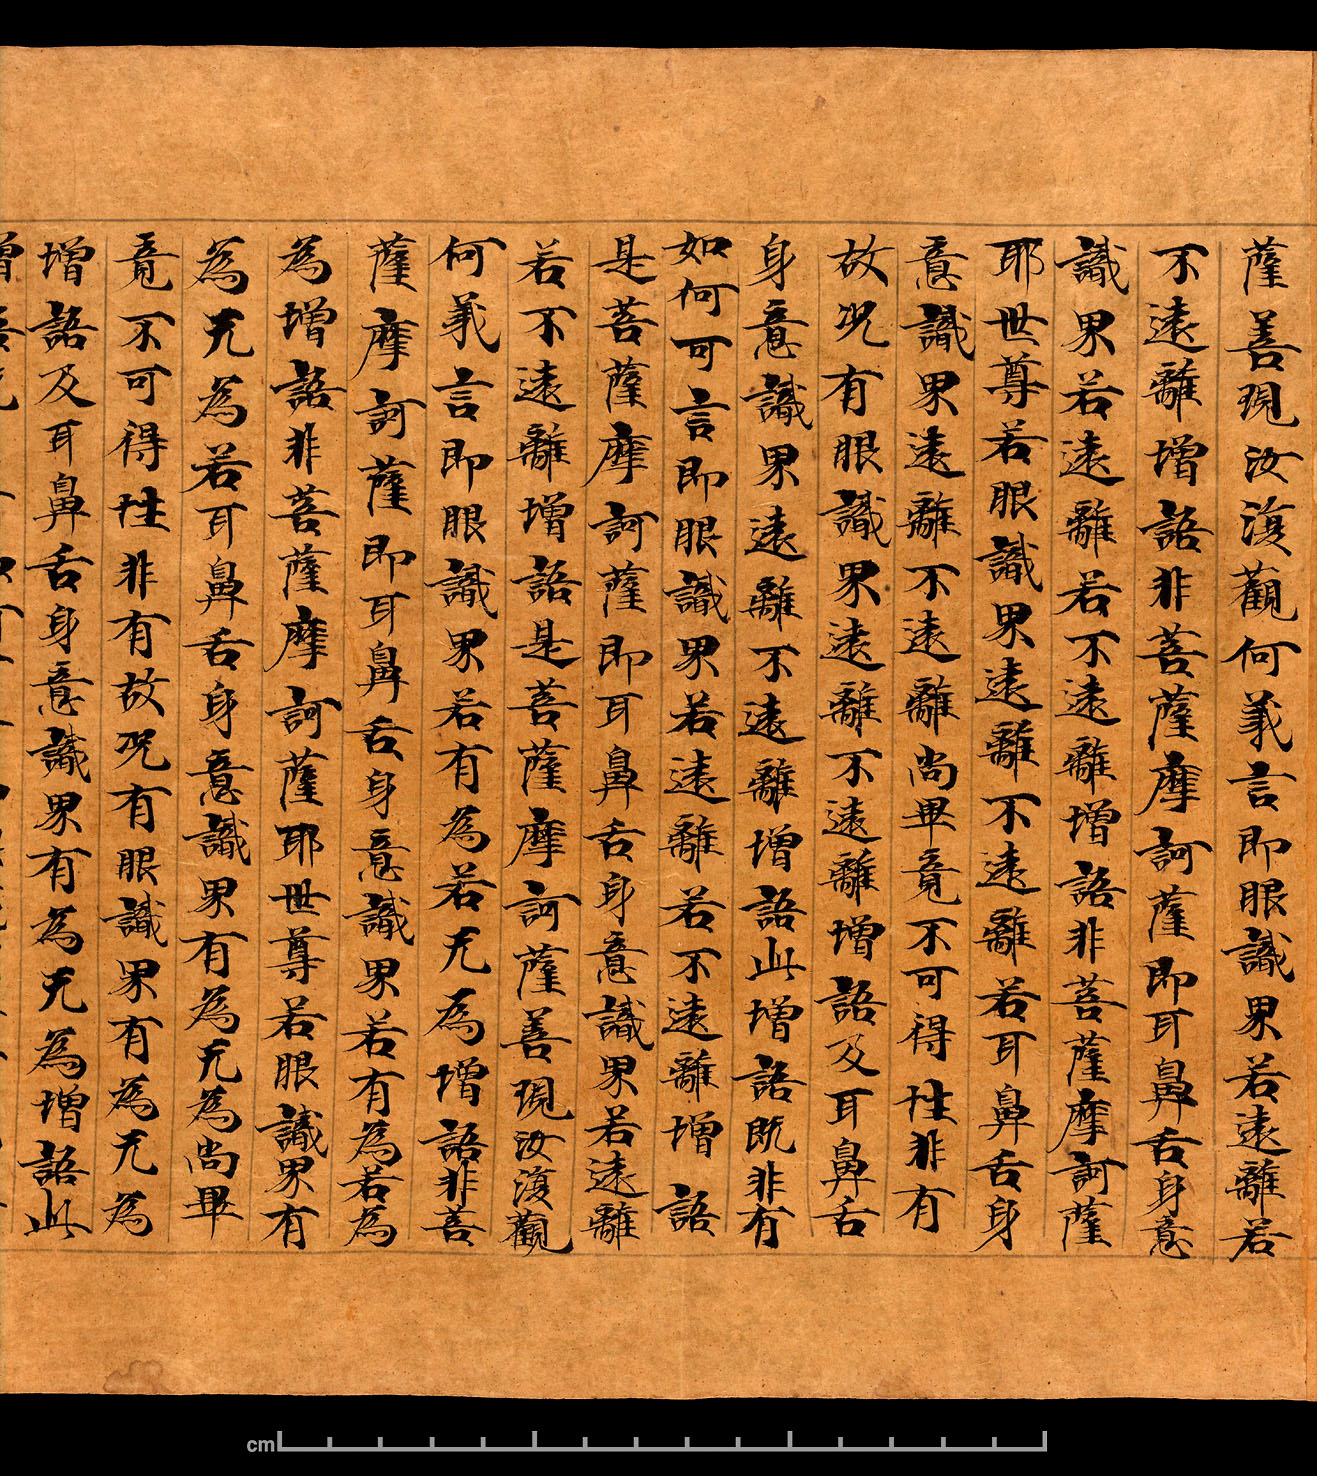 薩善現汝復觀何義言即眼識界若遠離若
不遠離增語非菩薩摩訶薩即耳鼻舌身意
識界若遠離若不遠離增語非菩薩摩訶薩
耶世尊若眼識界遠離不遠離若耳鼻舌身
意識界遠離不遠離尚畢竟不可得性非有
故况有眼識界遠離不遠離增語及耳鼻舌
身意識界遠離不遠離增語此增語既非有
如何可言即眼識界若遠離若不遠離增語
是菩薩摩訶薩即耳鼻舌身意識界若遠離
若不遠離增語是菩薩摩訶薩善現汝復觀
何義言即眼識界若有為若无為增語非菩
薩摩訶薩即耳鼻舌身意識界若有為若為
為增語非菩薩摩訶薩耶世尊若眼識界有
為无為若耳鼻舌身意識界有為无為尚畢
竟不可得性非有故况有眼識界有為无為
增語及耳鼻舌身意識界有為无為增語此
cm